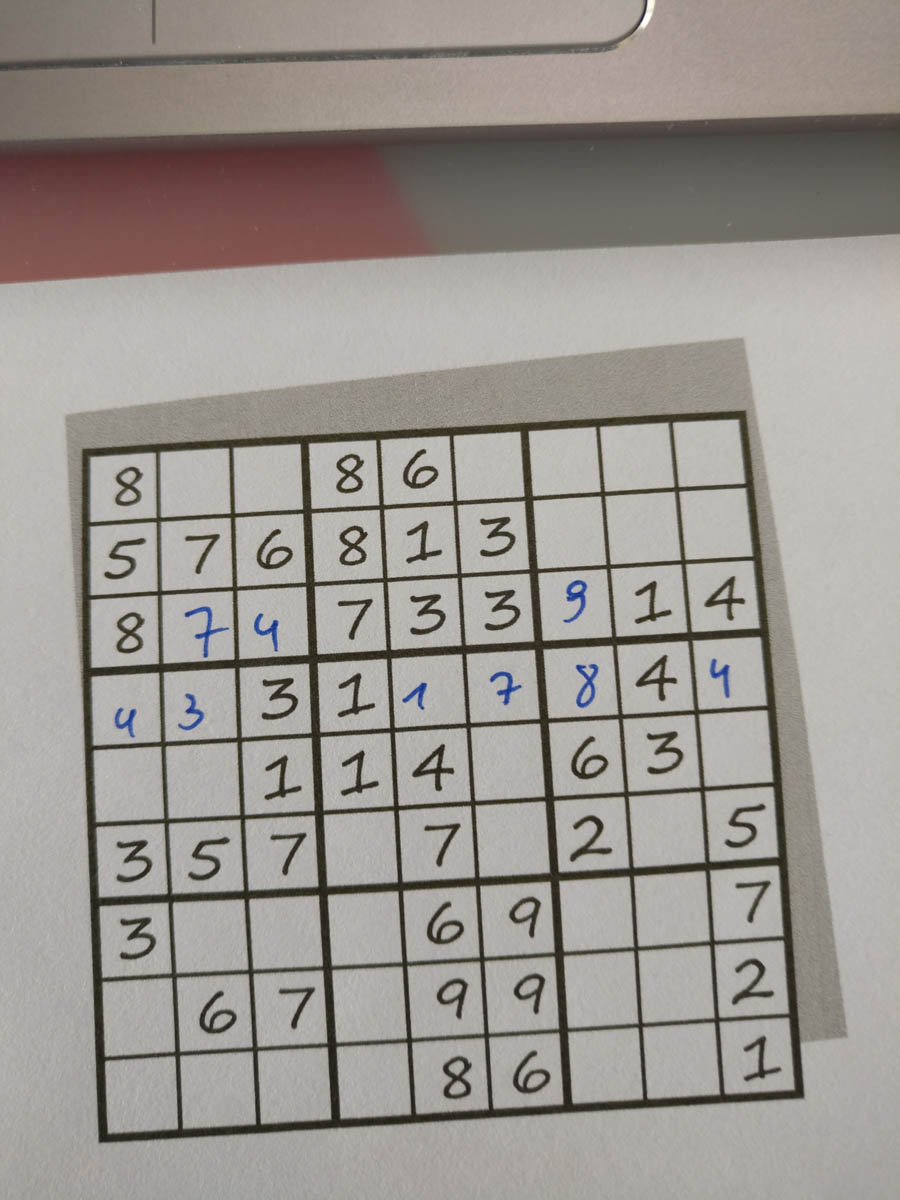 8 8 6
5 7 6 8 1 3
8 7 4 7 3 3 9 1 4
4 3 3 1 1 7 8 4 4
1 1 4 6 3
3 5 7 7 2 5
3 6 9 7
6 7 9 9 2
8 6 1